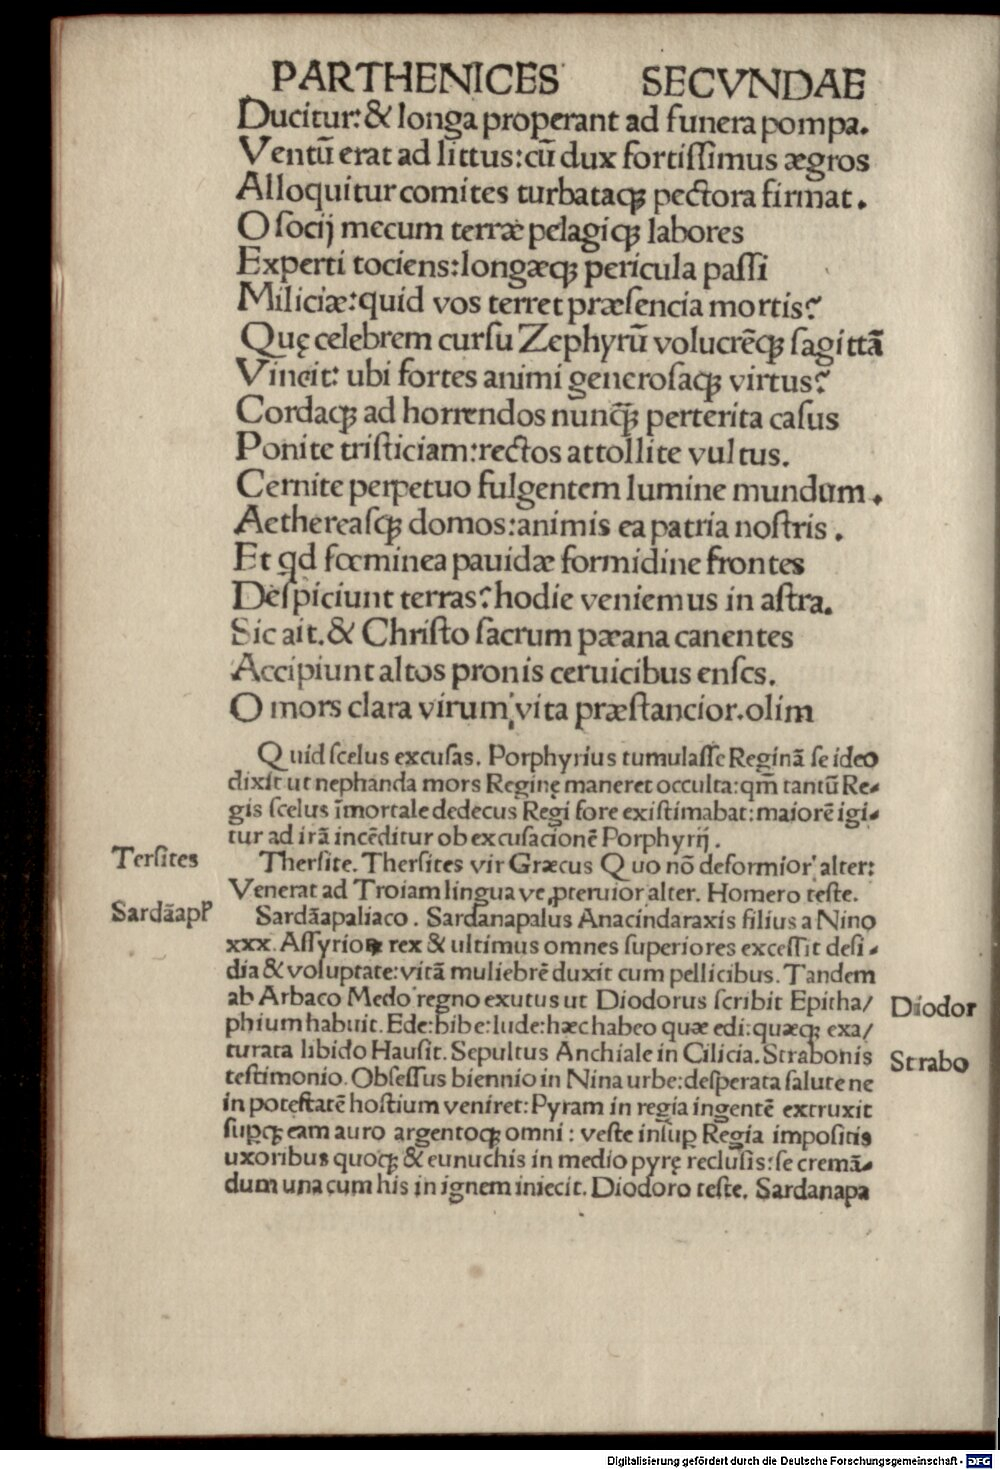 PARTHENICES SECVNDAE
Ducitur:& longa properant ad funera pompa.
Ventū erat ad littus:cū dux fortiſſimus ægros
Alloquitur comites turbataqꝫ pectora firmat.
O ſocij mecum terræ pelagiqꝫ labores
Experti tociens:longæqꝫ pericula paſſi
Miliciæ:quid vos terret præſencia mortis?
Quę celebrem curſu Zephyrū volucrēqꝫ ſagittā
Vincit: ubi fortes animi generoſaqꝫ virtus?
Cordaqꝫ ad horrendos nunq̄ꝫ perterita caſus
Ponite triſticiam:rectos attollite vultus.
Cernite perpetuo fulgentem lumine mundum.
Aethereaſqꝫ domos:animis ea patria noſtris.
Et qd fœminea pauidæ formidine frontes
Deſpiciunt terras?hodie veniemus in aſtra.
Sic ait.& Chriſto ſacrum pæana canentes
Accipiunt altos pronis ceruicibus enſes.
O mors clara virum,vita præſtancior.olim
Quid ſcelus excuſas. Porphyrius tumulaſſe Reginā ſe ideo
dixit ut nephanda mors Reginę maneret occulta:qm̄ tantū Re-
gis ſcelus īmortale dedecus Regi fore exiſtimabat:maiorē igi-
tur ad irā incēditur ob excuſacionē Porphyrij.
Terſites
Therſite. Therſites vir Græcus Quo nō deformior alter:
Venerat ad Troiam lingua ve ꝓteruior alter. Homero teſte.
Sardāapl'
Sardāapaliaco. Sardanapalus Anacindaraxis filius a Nino
xxx. Aſſyrioꝝ rex & ultimus omnes ſuperiores exceſſit deſi-
dia & voluptate:vitā muliebrē duxit cum pellicibus. Tandem
ab Arbaco Medo regno exutus ut Diodorus ſcribit Epitha/
Diodor
phium habuit. Ede:bibe:lude:hæc habeo quæ edi:quæqꝫ exa/
turata libido Hauſit. Sepultus Anchiale in Cilicia. Strabonis
Strabo
teſtimonio. Obſeſſus biennio in Nina urbe:deſperata ſalute ne
in poteſtatē hoſtium veniret:Pyram in regia ingentē extruxit
ſuꝑqꝫ eam auro argentoqꝫ omni: veſte inſuꝑ Regia impoſitis
uxoribus quoqꝫ & eunuchis in medio pyrę recluſis:ſe cremā-
dum una cum his in ignem iniecit. Diodoro teſte. Sardanapa
Digitalisierung gefördert durch die Deutsche Forschungsgemeinschaft - DFG